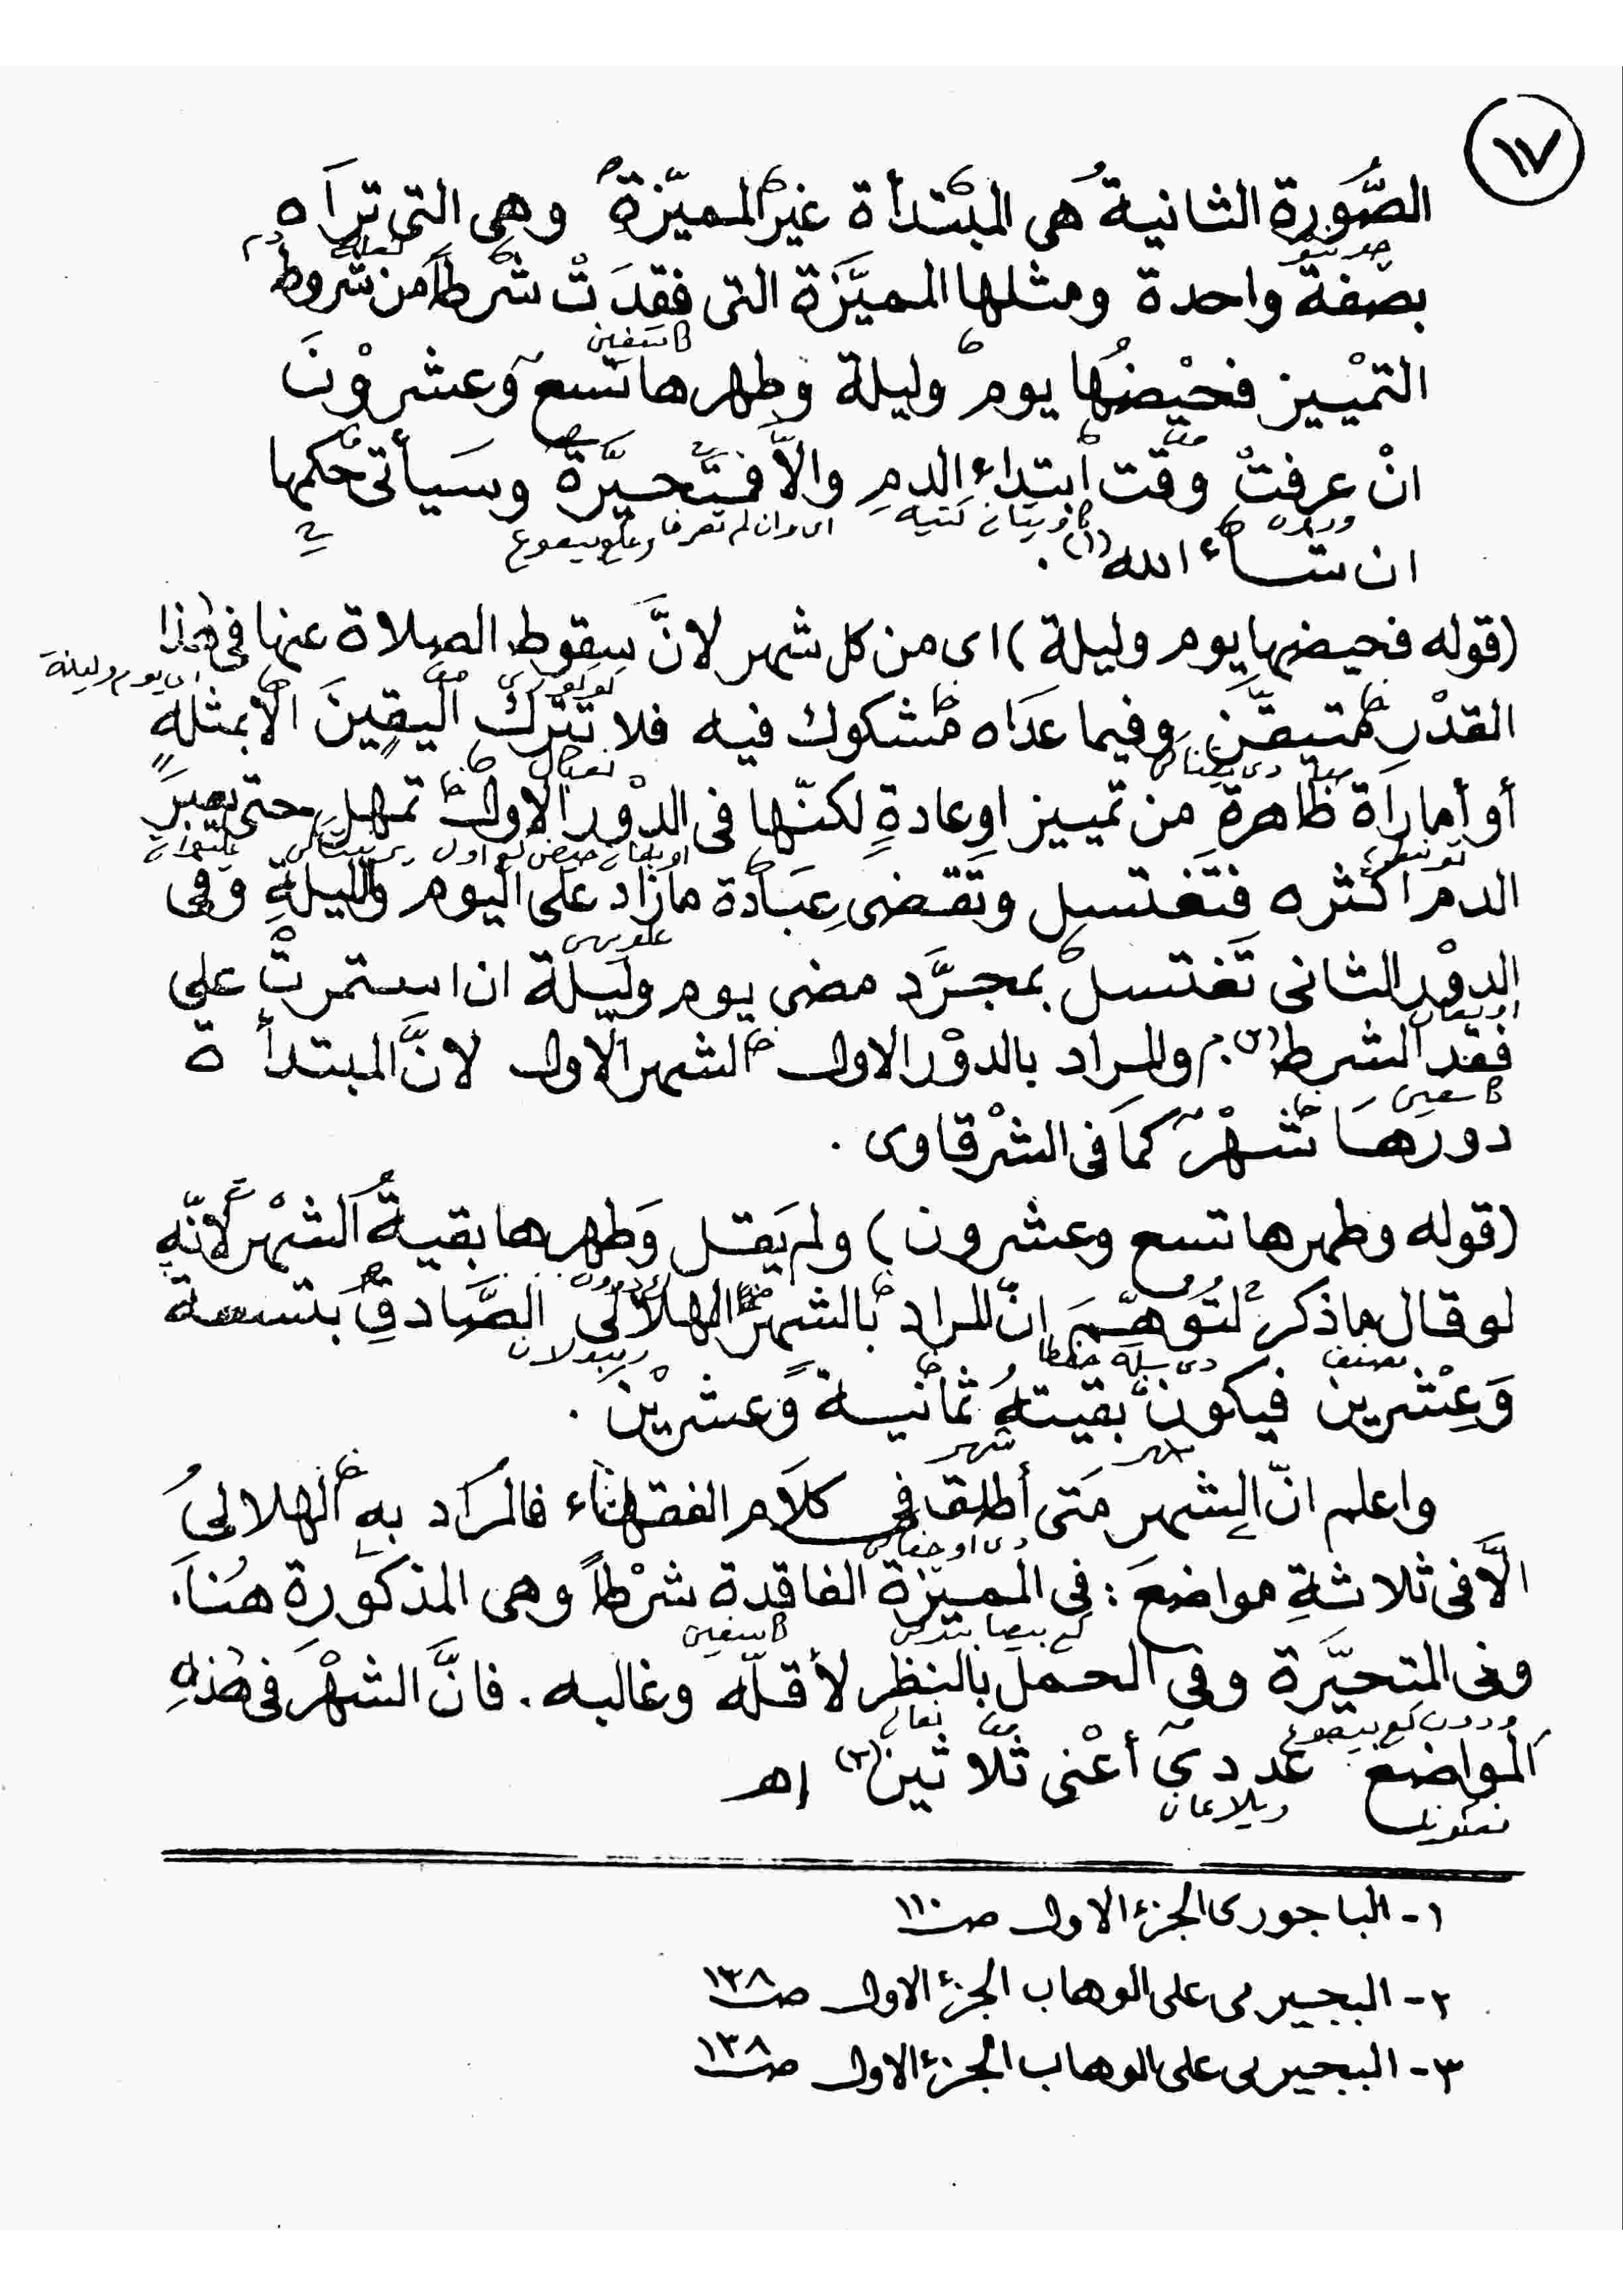 ١٧
الصُّوَرة الثانية هى المبْتدأة غيْر المميّزة وهى التى ترَاه
بصفة واحدة ومثلها المميَّزَة التى فقدَتْ شرْطاً من شروط
التمْييز فحيْضُها يوم وليلة وطهرها تسع وعشرُوْنَ
انْ عرفتْ وقت ابتداء الدمِ والاَّ فمتَحيِّرَة وسَيأتى حكمها
ان شاء الله (١) .
(قوله فحيضها يوم وليلة) اى من كل شهر لانَّ سِقوط الصلاة عنها فى هٰذا
اى يوم وليلة
القدْر متيقَّن وفيما عدَاه مشكوك فيه فلا تتْرك اليقِينَ الا بمثله
أو أمارَاة ظاهرةٍ من تمييز اوعادةٍ لكنّها فى الدوْر الاول تمهل حتى يعبرَ
الدم اكثره فتَغتسل وتَقضى عِبَادة مازاد على اليوم والليلةِ وفى
الدوْر الثانى تَغتسل بمجرَّد مضى يوم وليلة ان استمرتْ على
فقد الشرط (٢) . والمراد بالدوْر الاول الشهر الاول لانَّ المبتدأ ة
دورهَا شهْر كمَا فى الشرْقاوى .
(قوله وطهرها تسع وعشرون) ولم يَقل وَطهرها بقيةُ الشهْر لانّه
لوقال ماذكر لتُوُهِّمَ انّ المراد بالشهر الهلالى الصَّادق بتسعة
وَعِشرين فيكون بقيته ثمانية وعشريْنَ .
واعلم انّ الشهر مَتى أطلق فى كلاَم الفقهاء فالمرَاد به الهلالىُ
الَّا فى ثلاثةِ مواضعَ : فى المميزة الفاقدة شرْطاً وهى المذكورة هُناَ.
وفى المتحيَّرة وفى الحمل بالنظر لأقلّه وغالبه . فانَّ الشهْرَ فى هٰذهِ
المواضع عدديّ أعْنى ثلاثين (٣) إهـ
١- الباجورى الجزء الاول صـ ١١٠
٢- البجيرمى على الوهاب الجزء الاول صـ ١٣٨
٣- البجيرمى على الوهاب الجزء الاول صـ ١٣٨